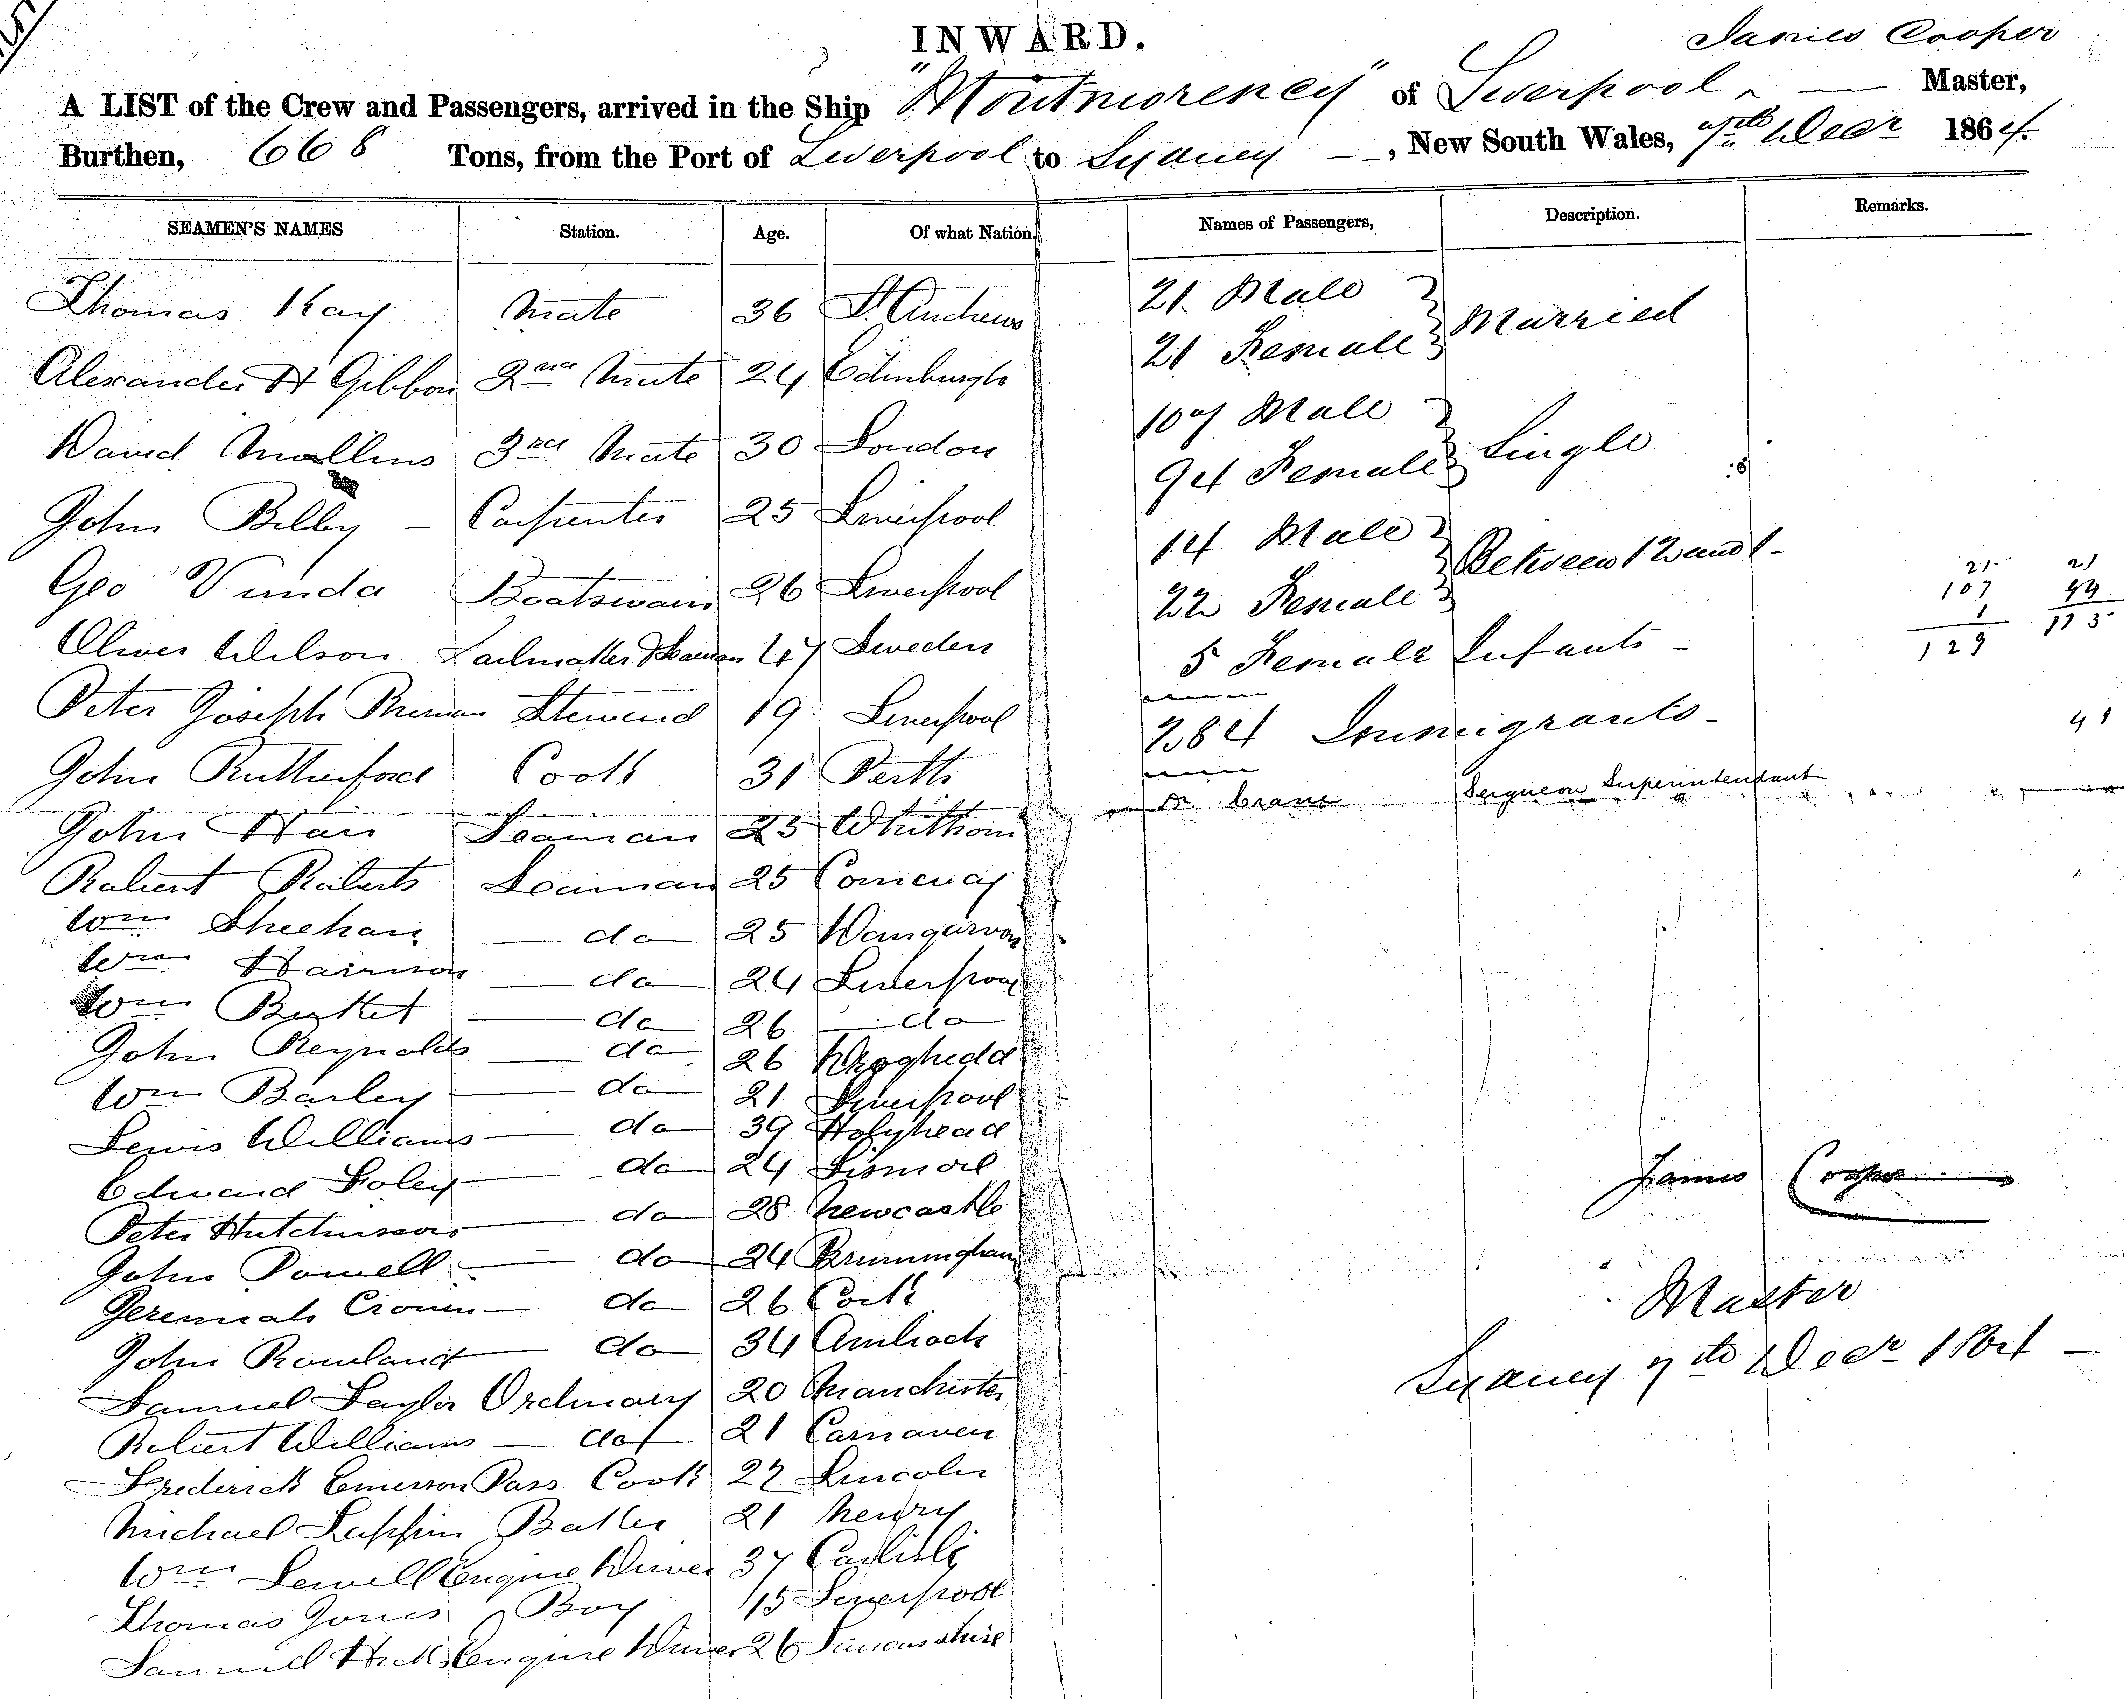 INWARD.
James Cooper
A LIST of the Crew and Passengers, arrived in the Ship "Montmorency" of Liverpool — Master,
Burthen, 668 Tons, from the Port of Liverpool to Sydney —, New South Wales, 7th Decr 1864.
SEAMEN'S NAMES Station. Age. Of what Nation. Names of Passengers, Description. Remarks.
Thomas Kay Mate 36 St. Andrews
Alexander H Gibbon 2nd Mate 24 Edinburgh
David Mollins 3rd Mate 30 London
John Bilby - Carpenter 25 Liverpool
Geo Vunda Boatswain 26 Liverpool
Oliver Wilson Sailmaker & Seaman 47 Sweden
Peter Joseph Steward 19 Liverpool
John Rutherford Cook 31 Perth
John Hair Seaman 25 Whithorn
Robert Roberts Seaman 25 Conway
Wm Sheehan — do 25
Wm Hairman — do 24 Liverpool
Wm Bucket — do 26 — do
John Reynolds — do 26
Wm Barley — do 21 Liverpool
Lewis Williams — do 39 Holyhead
Edward Foley — do 24 Lismore
Peter Hutchinson — do 28 Newcastle
John Powell — do 24 Birmingham
Jeremiah Cronin — do 26 Cork
John Rowland — do 34 Amlwch
Samuel Taylor Ordinary 20 Manchester
Robert Williams — do 21 Carnaven
Frederick Emerson Pass Cook 27 Lincoln
Michael Baker 21 Newry
Wm Sewell Engine Driver 37 Carlisle
Thomas Jones Boy 15 Liverpool
Samuel Hicks Engine Driver 26
21 Male
21 Female
Married
107 Male
94 Female
Single
14 Male
22 Female
Between 12 and 1 -
5 Female Infants -
284 Immigrants -
Dr Crane Surgeon Superintendant
21 21
107 94
1
129 115
41
James Cooper
Master
Sydney 7th Decr 1864 —